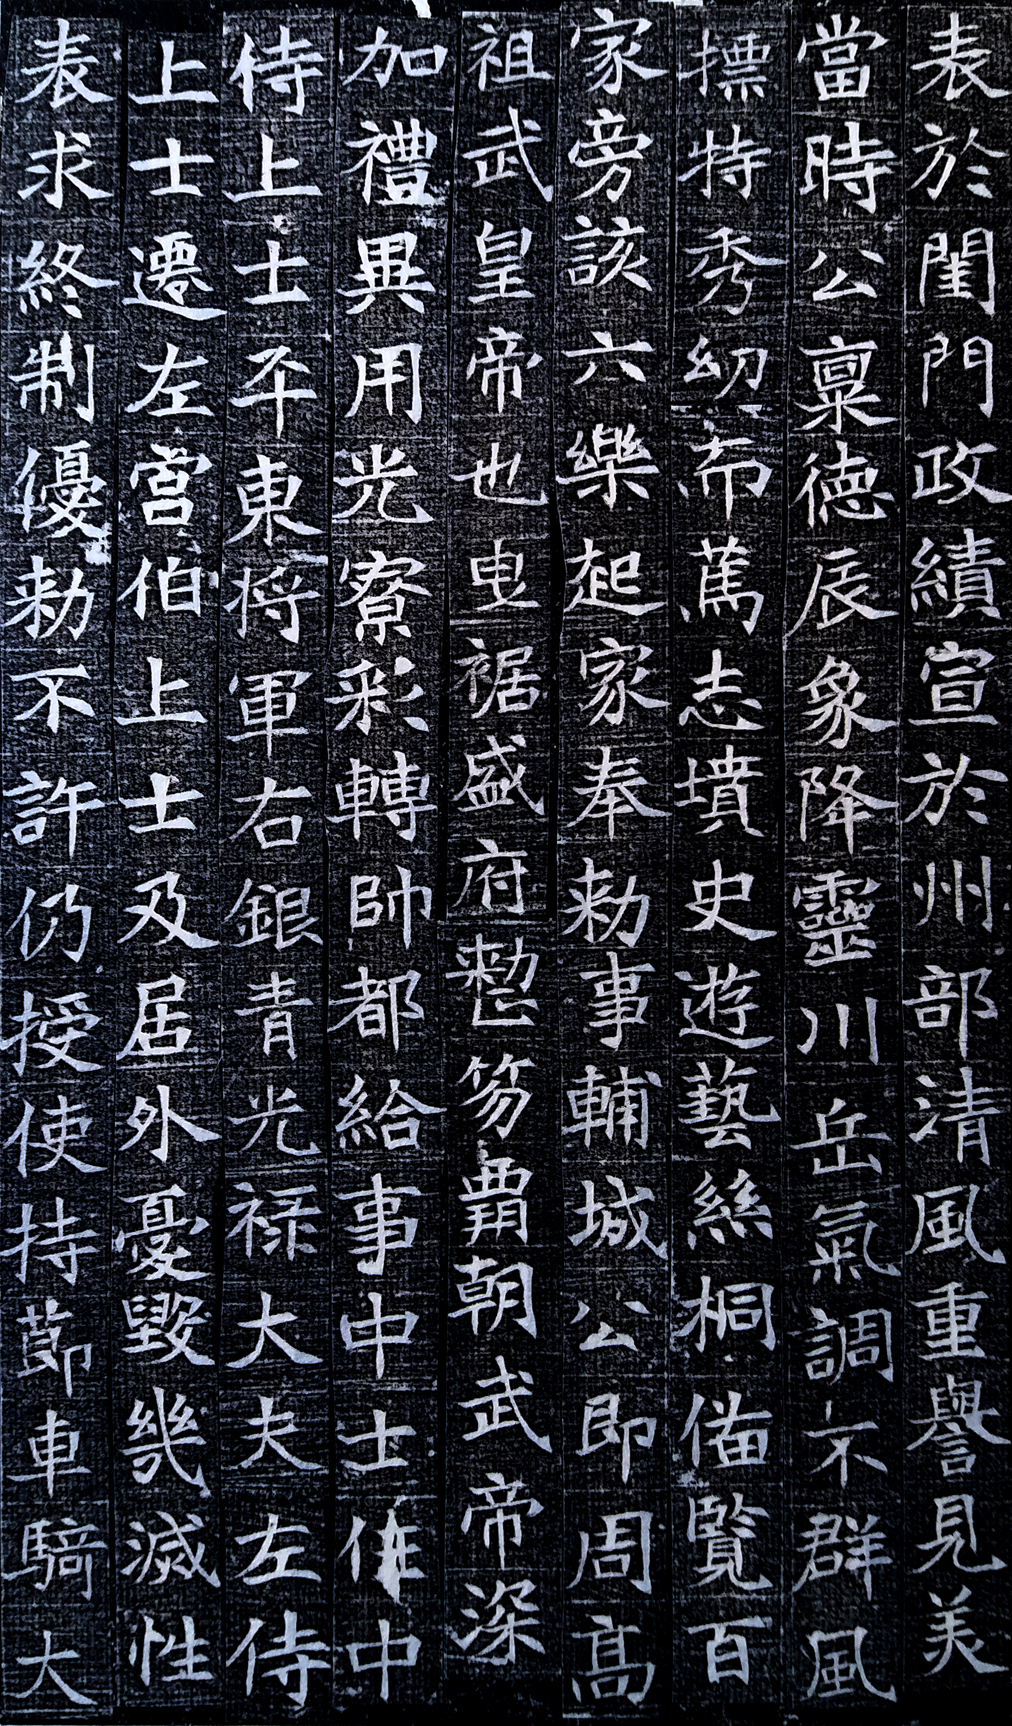 表於閨門政績宣於州部清風重譽見美
當時公稟德辰象降靈川岳氣調不群風
摽特秀幼而篤志墳史遊藝絲桐備覽百
家旁該六樂起家奉勑事輔城公即周高
祖武皇帝也曳裾盛府整笏朝武帝深
加禮異用光寮彩轉帥都給事中士任中
侍上士平東將軍右銀青光祿大夫左侍
上士遷左宮伯上士及居外憂毀幾滅性
表求終制優勑不許仍授使持節車騎大